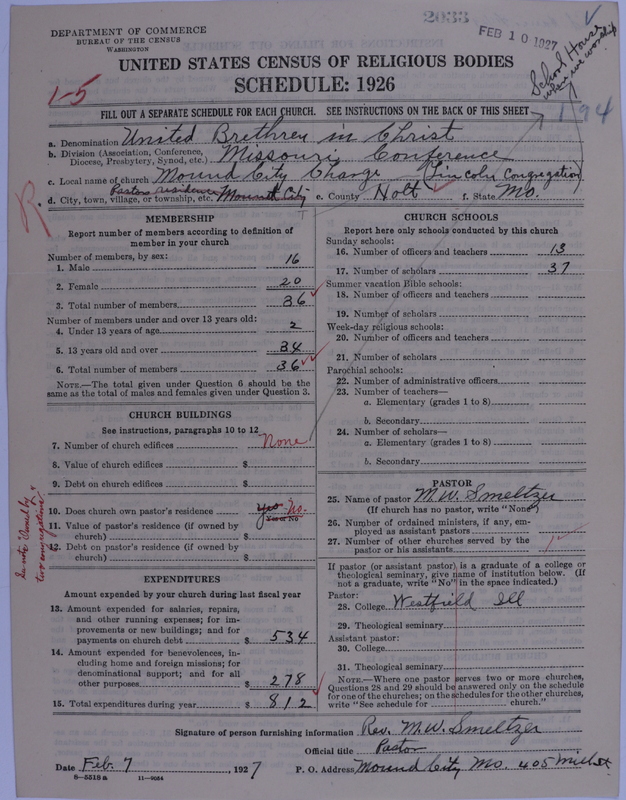 DEPARTMENT OF COMMERCE
BUREAU OF THE CENSUS
WASHINGTON
2033
FEB 10 1927
School House
where we worship
UNITED STATES CENSUS OF RELIGIOUS BODIES
SCHEDULE: 1926
1-5
194
FILL OUT A SEPARATE SCHEDULE FOR EACH CHURCH. SEE INSTRUCTIONS ON THE BACK OF THIS SHEET
a. Denomination United Brethren in Christ
b. Division (Association, Conference, Diocese, Presbytery, Synod, etc.) Missouri Conference
c. Local name of church Mound City Charge (Lincoln Congregation)
Pastors residence
d. City, town, village, or township, etc. Mound City e. County Holt f. State Mo.
R
MEMBERSHIP
Report number of members according to definition of
member in your church
Number of members, by sex:
1. Male 16
2. Female 20
3. Total number of members 36
Number of members under and over 13 years old:
4. Under 13 years of age 2
5. 13 years old and over 34
6. Total number of members 36
NOTE.—The total given under Question 6 should be the
same as the total of males and females given under Question 3.
CHURCH BUILDINGS
See instructions, paragraphs 10 to 12
7. Number of church edifices None
8. Value of church edifices $
9. Debt on church edifices $
10. Does church own pastor's residence yes No.
Yes or No
11. Value of pastor's residence (if owned by
church) $
12. Debt on pastor's residence (if owned by
church) $
"Owned by
two congregations"
EXPENDITURES
Amount expended by your church during last fiscal year
13. Amount expended for salaries, repairs,
and other running expenses; for im-
provements or new buildings; and for
payments on church debt $ 534
14. Amount expended for benevolences, in-
cluding home and foreign missions; for
denominational support; and for all
other purposes $ 278
15. Total expenditures during year $ 812
CHURCH SCHOOLS
Report here only schools conducted by this church
Sunday schools:
16. Number of officers and teachers 13
17. Number of scholars 37
Summer vacation Bible schools:
18. Number of officers and teachers
19. Number of scholars
Week-day religious schools:
20. Number of officers and teachers
21. Number of scholars
Parochial schools:
22. Number of administrative officers
23. Number of teachers—
a. Elementary (grades 1 to 8)
b. Secondary
24. Number of scholars—
a. Elementary (grades 1 to 8)
b. Secondary
PASTOR
25. Name of pastor M. W. Smeltzer
(If church has no pastor, write "None")
26. Number of ordained ministers, if any, em-
ployed as assistant pastors
27. Number of other churches served by the
pastor or his assistants 1
If pastor (or assistant pastor) is a graduate of a college or
theological seminary, give name of institution below. (If
not a graduate, write "No" in the space indicated.)
Pastor:
28. College Westfield Ill
29. Theological seminary
Assistant pastor:
30. College
31. Theological seminary
NOTE.—Where one pastor serves two or more churches,
Questions 28 and 29 should be answered only on the schedule
for one of the churches; on the schedules for the other churches,
write "See schedule for church."
Signature of person furnishing information Rev. M. W. Smeltzer
Official title Pastor
Date Feb. 7, 1927 P. O. Address Mound City Mo. 405 Mill st
8—5518a 11—9054